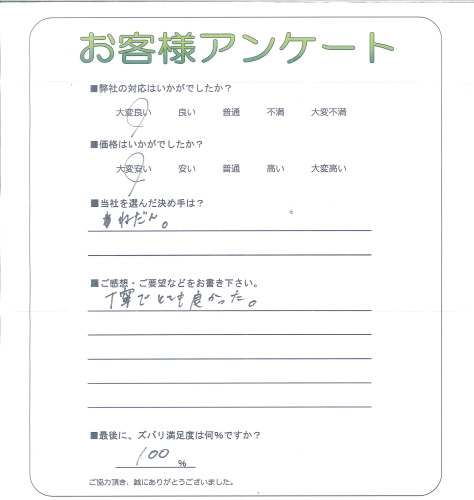 お客様アンケート
■弊社の対応はいかがでしたか？
大変良い 良い 普通 不満 大変不満
■価格はいかがでしたか？
大変安い 安い 普通 高い 大変高い
■当社を選んだ決め手は？
ねだん。
■ご感想・ご要望などをお書き下さい。
丁寧でとても良かった。
■最後に、ズバリ満足度は何％ですか？
100 ％
ご協力頂き、誠にありがとうございました。